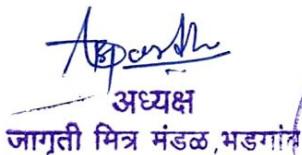 अध्यक्ष
जागृती मित्र मंडळ,भडगांव